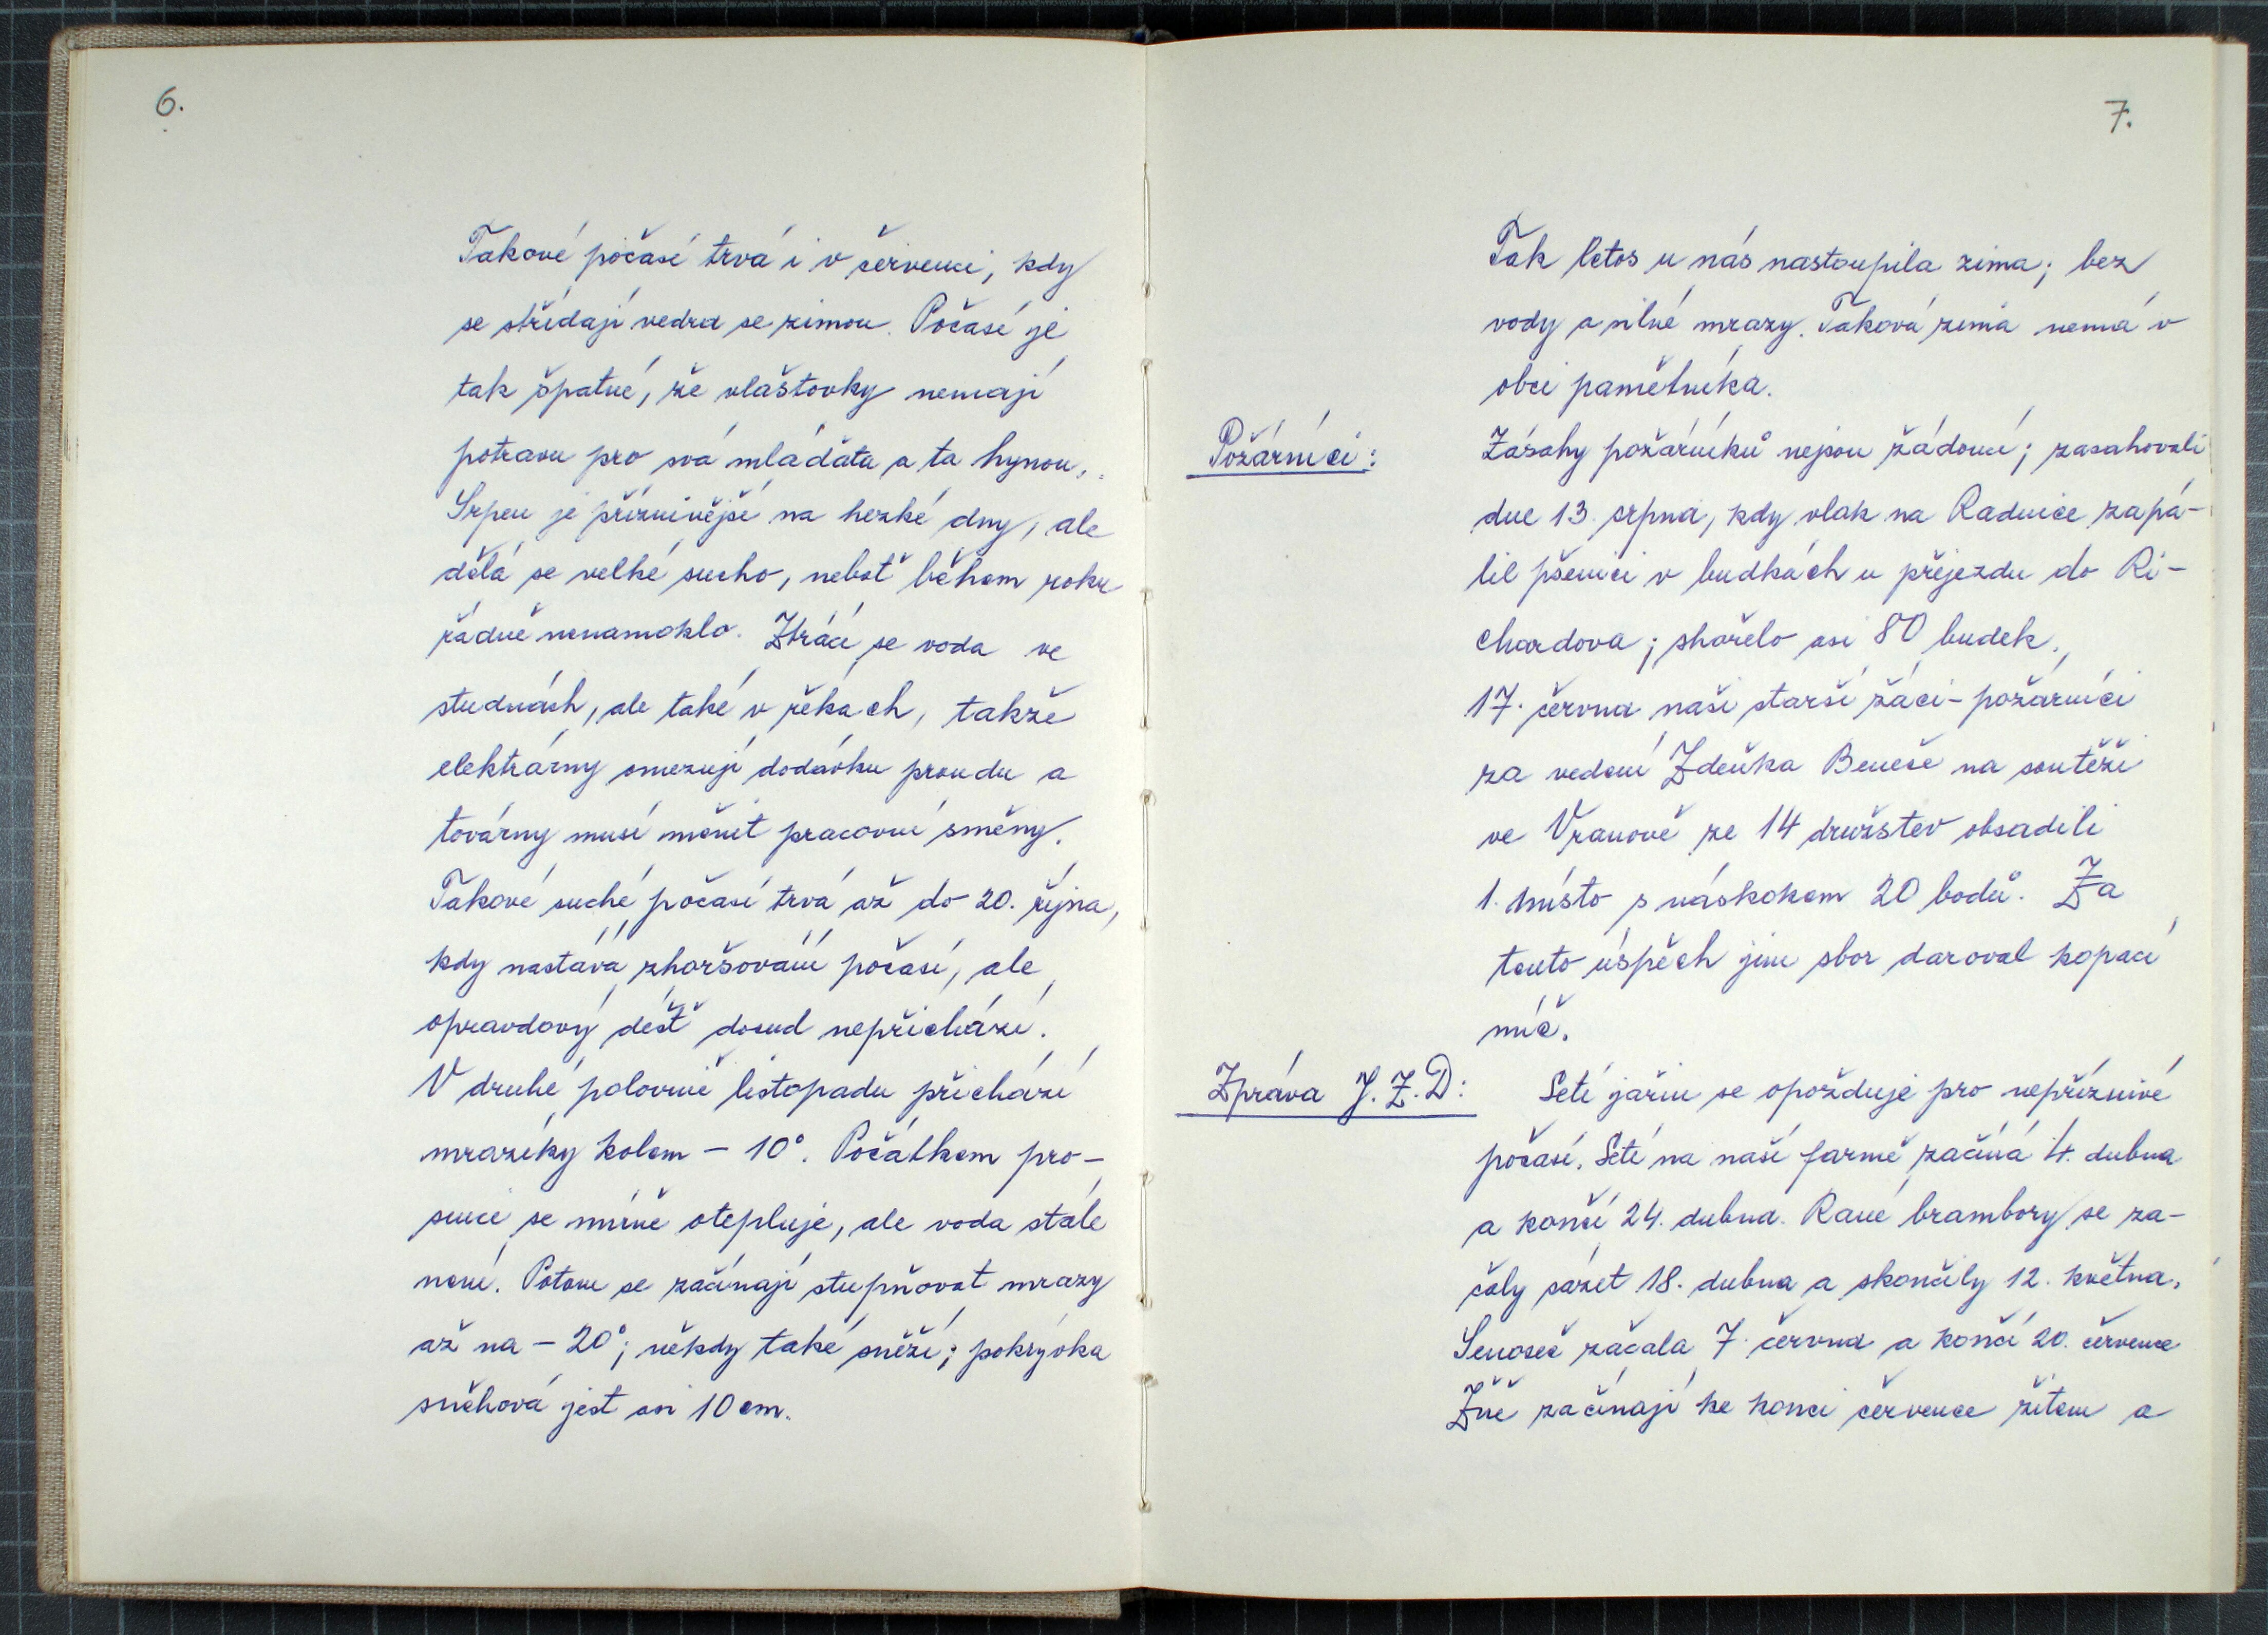 6.
Takové počasí trvá i v červenci, kdy
se střídají vedra se zimou. Počasí je
tak špatné, že vlaštovky nemají
potravu pro svá mláďata a ta hynou.
Srpen je příznivější na hezké dny, ale
dělá se velké sucho, neboť během roku
řádně nenamoklo. Ztrácí se voda ve
studnách, ale také v řekách, takže
elektrárny omezují dodávku proudu a
továrny musí měnit pracovní směny.
Takové suché počasí trvá až do 20. října,
kdy nastává zhoršování počasí, ale
opravdový déšť dosud nepřichází.
V druhé polovině listopadu přichází
mrazíky kolem - 10°. Počátkem pro-
since se mírně otepluje, ale voda stále
není. Potom se začínají stupňovat mrazy
až na - 20°; někdy také sněží; pokrývka
sněhová jest asi 10 cm.
7.
Tak letos u nás nastoupila zima; bez
vody a silné mrazy. Taková zima nemá v
obci pamětníka.
Požárníci:
Zásahy požárníků nejsou žádoucí; zasahovali
dne 13. srpna, kdy vlak na Radnice zapá-
lil pšenici v budkách u přejezdu do Ri-
chardova; shořelo asi 80 budek.
17. června naši starší žáci-požárníci
za vedení Zdeňka Beneše na soutěži
ve Vranově ze 14 družstev obsadili
1. místo s náskokem 20 bodů. Za
tento úspěch jim sbor daroval kopací
míč.
Zpráva J.Z.D:
Setí jařin se opožďuje pro nepříznivé
počasí. Setí na naší farmě začíná 4. dubna
a končí 24. dubna. Rané brambory se za-
čaly sázet 18. dubna a skončily 12. května.
Senoseč začala 7. června a končí 20. července
Žně začínají ke konci července žitem a